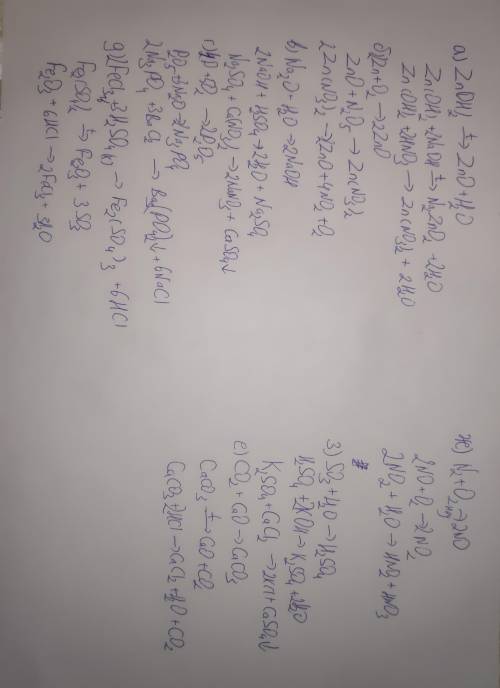 а) Zn(OH)2 t→ ZnO + H2O
Zn(OH)2 + NaOH t→ Na2ZnO2 + 2H2O
Zn(OH)2 + 2HNO3 → Zn(NO3)2 + 2H2O
б) 2Zn + O2 → 2ZnO
ZnO + N2O5 → Zn(NO3)2
2Zn(NO3)2 → 2ZnO + 4NO2 + O2
в) Na2O + H2O → 2NaOH
2NaOH + H2SO4 → 2H2O + Na2SO4
Na2SO4 + Ca(NO3)2 → 2NaNO3 + CaSO4↓
P2O5 + 3Na2O → 2Na3PO4
2Na3PO4 + 3BaCl2 → Ba3(PO4)2↓ + 6NaCl
2FeCl3 + 3H2SO4 → Fe2(SO4)3 + 6HCl
Fe2(SO4)3 t→ Fe2O3 + 3SO3
Fe2O3 + 6HCl → 2FeCl3 + 3H2O
ж) N2 + O2 → 2NO
2NO + O2 → 2NO2
2NO2 + H2O → HNO2 + HNO3
з) SO3 + H2O → H2SO4
H2SO4 + 2KOH → K2SO4 + 2H2O
K2SO4 + CaCl2 → 2KCl + CaSO4↓
е) CO2 + CaO → CaCO3
CaCO3 t→ CaO + CO2
CaCO3 + 2HCl → CaCl2 + H2O + CO2